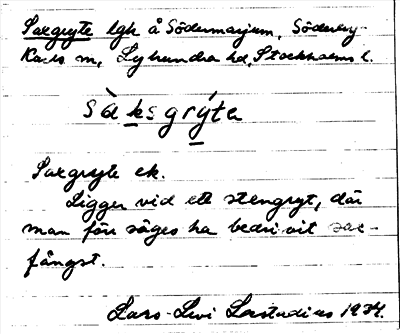 Saxgryte lgh å Södermarjum, Söderby-
Karls sn, Lyhundra hd, Stockholms l.
Sàksgrýta
Saxgryte ek.
Ligger vid ett stengryt, där
man förr säges ha bedrivit sax-
fångst.
Lars-Levi Læstadius 1934.